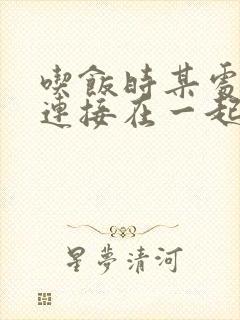 喫飯時某處
連接在一起
星夢清河